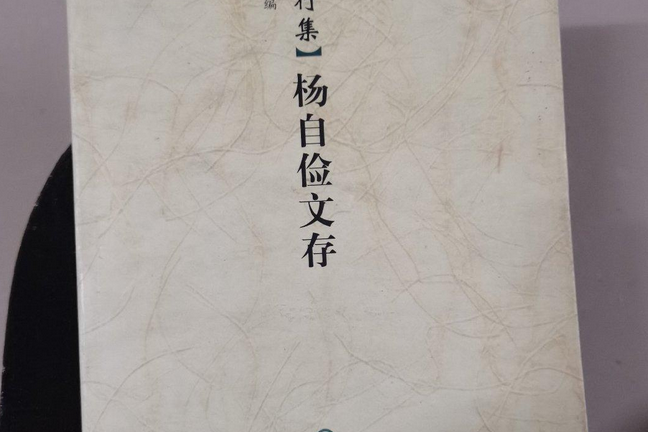 集】杨自俭文存
编